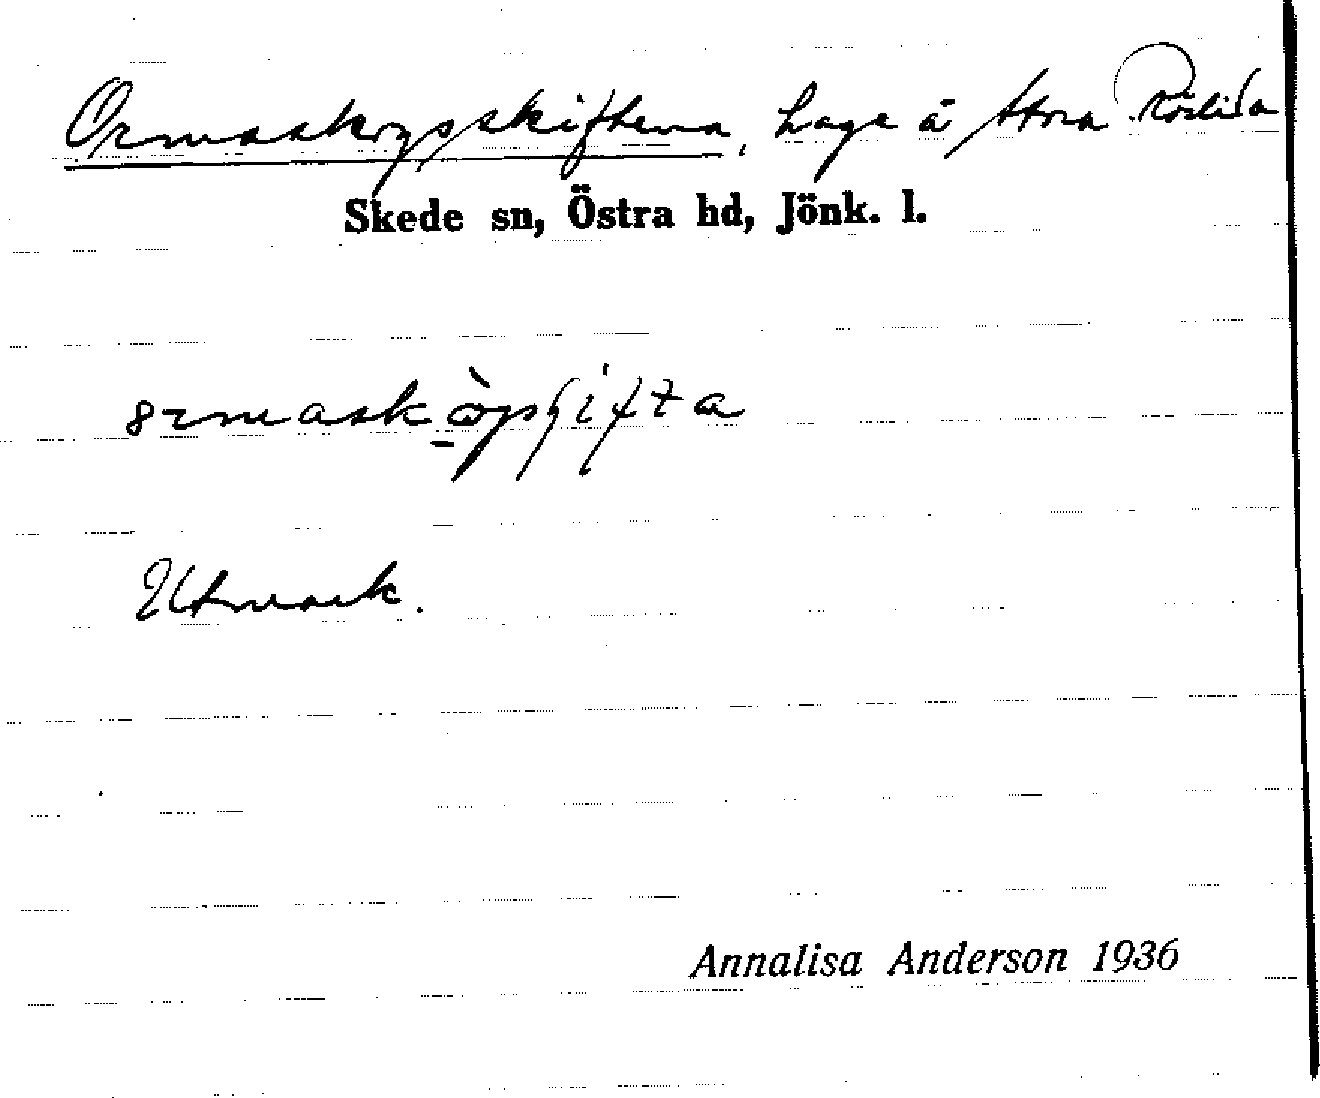 Ormaskogsskiftena, Lage å Stora Röslida
Skede sn, Östra hd, Jönk. l.
Utmark.
Annalisa Anderson 1936